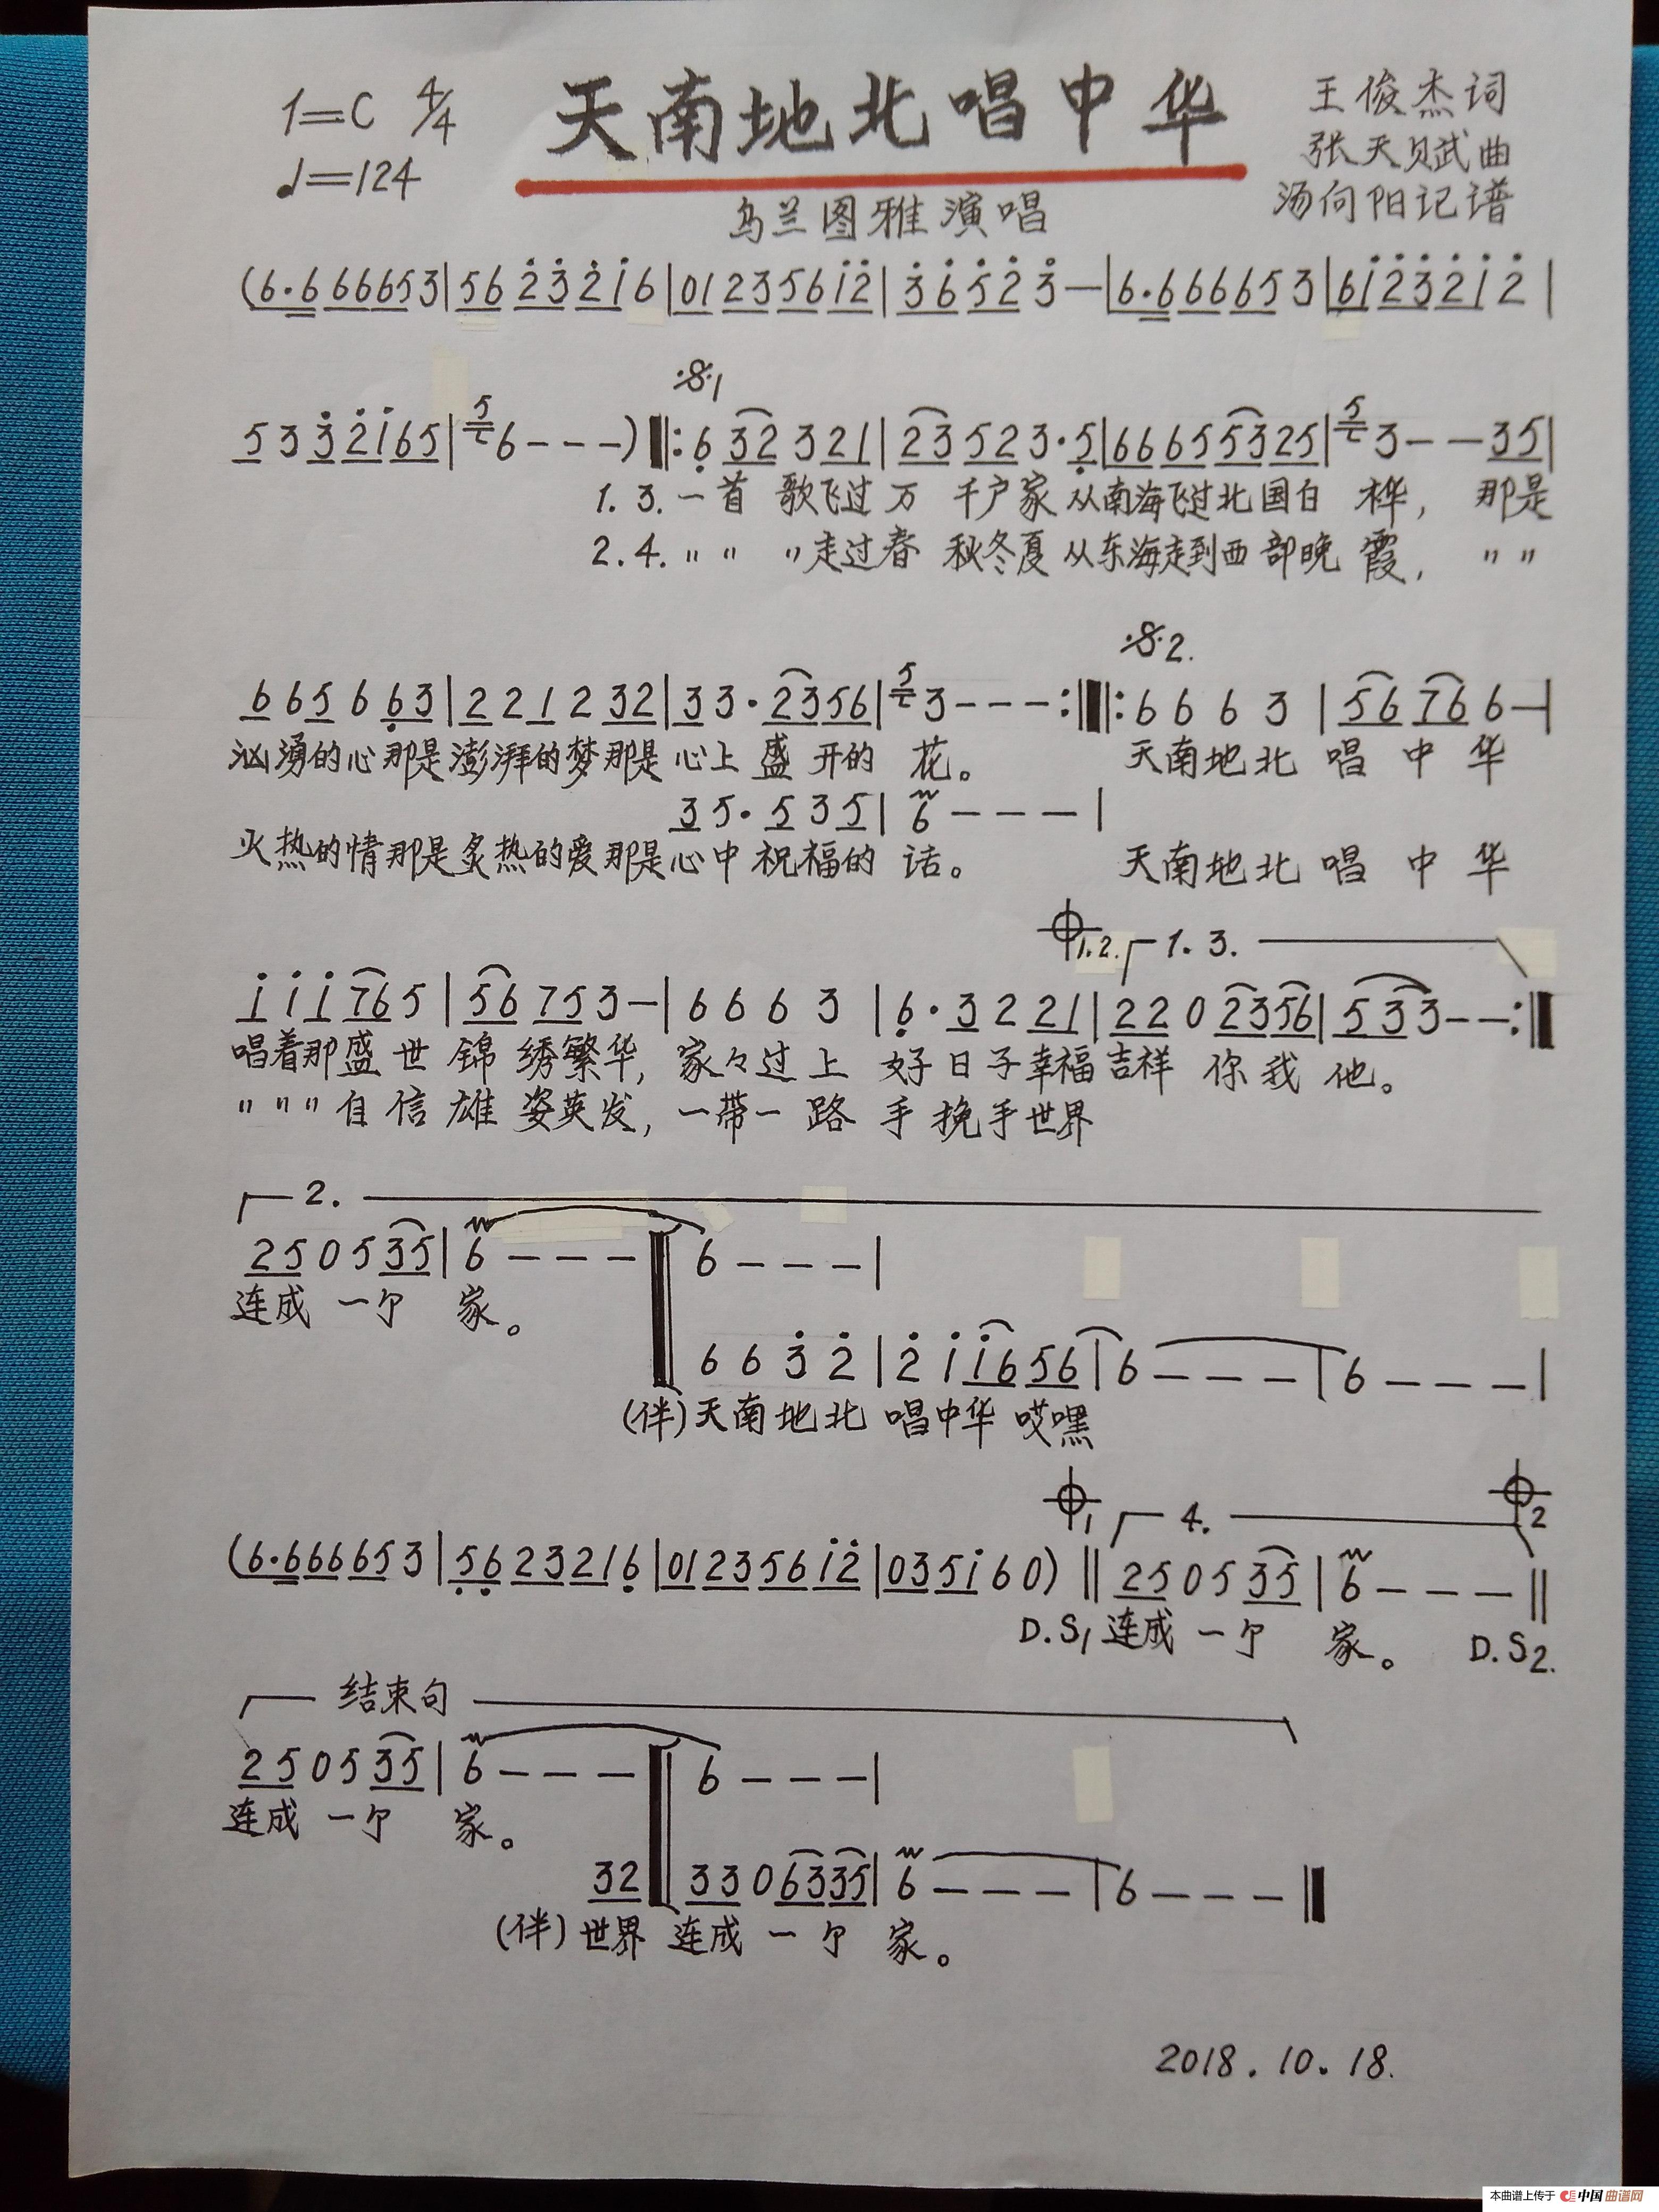 1=C 4/4 天南地北唱中华 王俊杰词
♩=124 张天贝武曲
乌兰图雅演唱 汤向阳记谱
(6·6 66653|56 2̇3̇ 2̇1̇6|01 23 56 1̇2̇|3̇6̇ 5̇2̇ 3̇—|6·6 66653|61̇ 2̇3̇ 2̇1̇ 2̇|
𝄋1
5 3 3̇ 2̇1̇ 65|5 6---)‖:6̣ 32 3 21|23 52 3·5̣|66 65 53 25|5 3--35|
1.3.一首 歌飞过 万 千户家 从南海飞过北国白 桦, 那是
2.4.〃〃 〃走过春 秋冬夏 从东海走到西部晚 霞, 〃〃
𝄋2.
6 65 6 6̣3|2 21 2 32|3 3·2356|5 3---:‖:6 6 6 3|56 76 6—|
汹湧的心那是澎湃的梦那是 心上 盛 开的 花。 天南地北 唱 中 华
3 5·5 3 5|6---|
火热的情那是炙热的爱那是心中 祝福的 话。 天南地北 唱 中 华
𝄌1.2. 1.3.
1̇ 1̇ 1̇ 76 5|56 75 3—|6 6 6 3|6̣·3 2 21|22 0 2356|5 3 3--:‖
唱着那盛 世 锦 绣繁华, 家々过 上 好 日 子 幸福 吉祥 你 我 他。
〃〃〃自 信 雄 姿英发, 一带一 路 手 挽 手 世界
2.
25 0 5 35|6---‖6---|
连成 一个 家。
6 6 3̇ 2̇|2̇ 1̇ 1̇6 56|6---|6---|
(伴)天南地北 唱中华 哎嘿
𝄌1 4. 𝄌2
(6·6 66 65 3|5̣6̣ 23 21 6̣|01 23 56 1̇2̇|03 51̇ 6 0)‖25 0 5 35|6---‖
D.S1 连成 一个 家。 D.S2.
结束句
25 0 5 35|6---‖6---|
连成 一个 家。
32‖33 0 63 35|6---|6---‖
(伴)世界 连成 一个 家。
2018.10.18.
本曲谱上传于 中国曲谱网